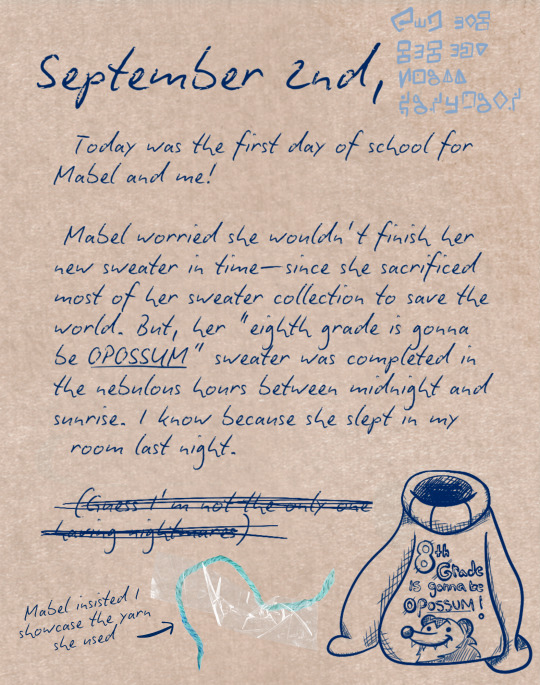 September 2nd,
Today was the first day of school for
Mabel and me!
Mabel worried she wouldn't finish her
new sweater in time—since she sacrificed
most of her sweater collection to save the
world. But, her "eighth grade is gonna
be OPOSSUM" sweater was completed in
the nebulous hours between midnight and
sunrise. I know because she slept in my
room last night.
(Guess I'm not the only one
having nightmares)
Mabel insisted I
showcase the yarn
she used
8th
Grade
is gonna be
OPOSSUM!